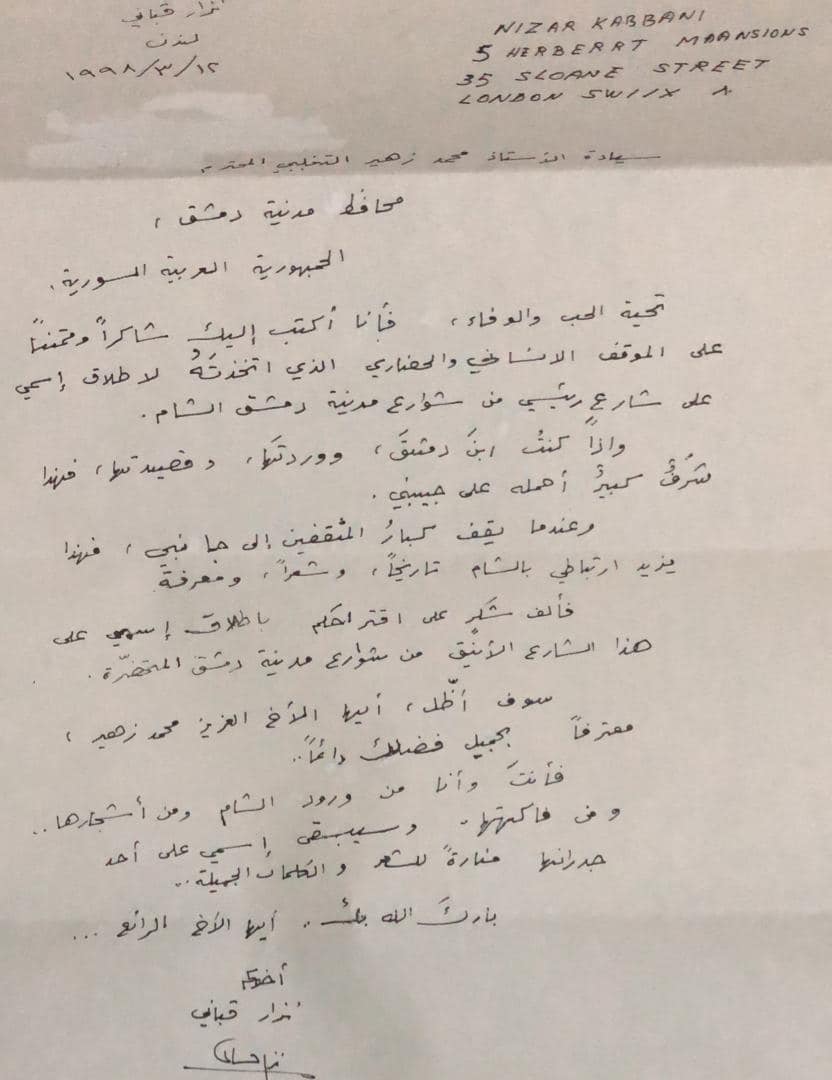 نزار قباني
لندن
١٩٩٨/٣/١٢
NIZAR KABBANI
5 HERBERRT MAANSIONS
35 SLOANE STREET
LONDON SW1X
سيادة الأستاذ محمد زهير التغلبي المحترم
محافظ مدينة دمشق ،
الجمهورية العربية السورية .
تحية الحب والوفاء ، فأنا أكتب إليك شاكراً وممتناً
على الموقف الانساني والحضاري الذي اتخذتَهُ لاطلاق إسمي
على شارع رئيسي من شوارع مدينة دمشق الشام .
واذا كنتُ ابنَ دمشقَ ، ووردتَها ، وقصيدتها ، فهذا
شرفٌ كبيرٌ أحمله على جبيني .
وعندما يقف كبارُ المثقفين إلى جانبي ، فهذا
يزيد ارتباطي بالشام تاريخاً ، وشعراً ، ومعرفةً
فألف شكر على اقتراحكم باطلاق إسمي على
هذا الشارع الأنيق من شوارع مدينة دمشق المتحضّرة .
سوف أظّل ، أيها الأخ العزيز محمد زهير ،
معترفاً بجميل فضلك دائماً ..
فأنتَ وأنا من ورود الشام ومن أشجارها ..
ومن فاكهتها . وسيبقى إسمي على أحد
جدرانها منارةً للشعر والكلمات الجميلة ..
باركَ الله بك .. أيها الأخ الرائع ...
أخوكم
نزار قباني